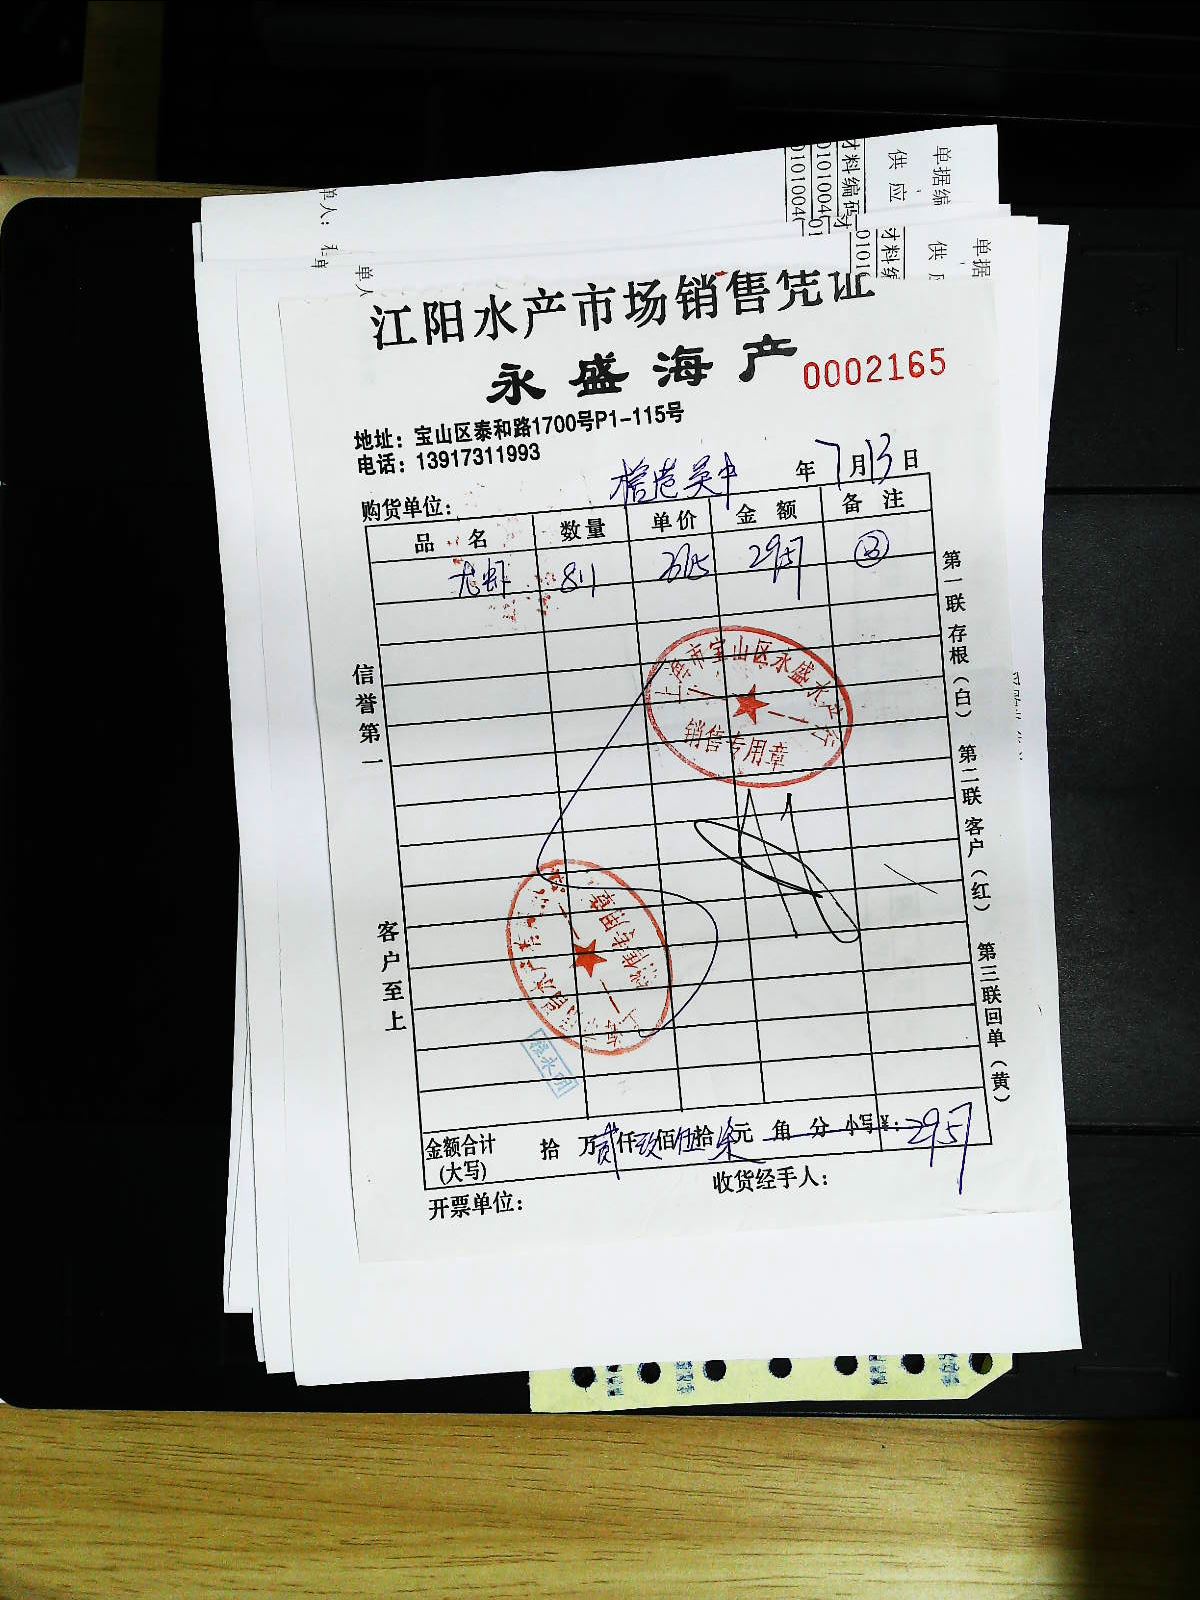 单据编
供应
材料编码
0101004
0101004
单人：
单据
供
材料编
01016
单人
江阳水产市场销售凭证
永盛海产
0002165
地址：宝山区泰和路1700号P1-115号
电话：13917311993
购货单位： 吴中 年7月13日
品名 数量 单价 金额 备注
虾 811 2957
上海市宝山区永盛水产
销售专用章
信誉第一
客户至上
第一联存根（白） 第二联客户（红） 第三联回单（黄）
销售专用章
金额合计（大写） 拾 万贰仟玖佰伍拾柒元 角 分 小写¥：2957
开票单位： 收货经手人：